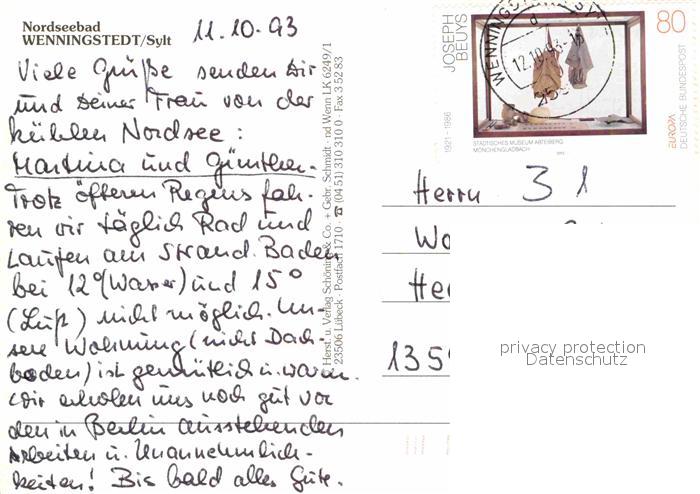 Nordseebad
WENNINGSTEDT/Sylt
11.10.93
Viele Grüße senden Dir
und Deiner Frau von der
kühlen Nordsee:
Martina und Günther.
Trotz öfteren Regens fah-
ren wir täglich Rad und
Laufen am Strand. Baden
bei 12° (Wasser) und 15°
(Luft) nicht möglich. Un-
sere Wohnung (nicht Dach-
boden) ist gemütlich u. warm.
Wir erholen uns noch gut vor
den in Berlin ausstehenden
Arbeiten u. Unannehmlich-
keiten! Bis bald alles Gute.
Herst. u. Verlag Schöning & Co. + Gebr. Schmidt · nd Wenn LK 6249/1
23506 Lübeck · Postfach 1710 · ☎ (04 51) 310 310 0 · Fax 3 52 83
JOSEPH
BEUYS
1921 - 1986
80
WENNINGST
d
12.10.93-16
STÄDTISCHES MUSEUM ABTEIBERG
MÖNCHENGLADBACH
EUROPA
DEUTSCHE BUNDESPOST
Herrn 31
Wo
He
1359
privacy protection
Datenschutz